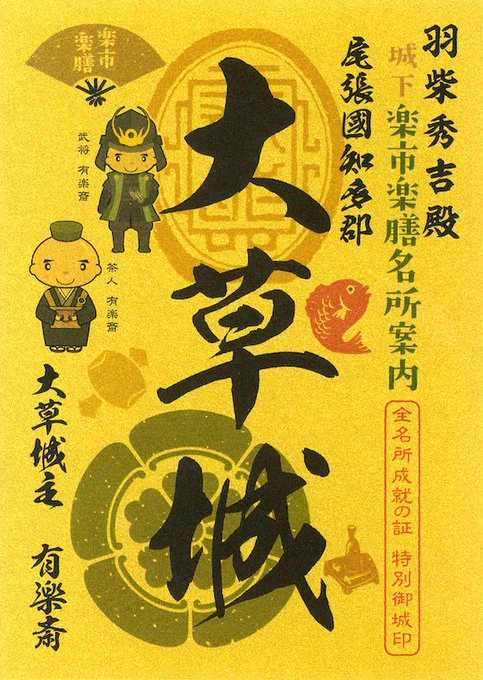 羽柴秀吉殿
城下楽市楽膳名所案内
全名所成就の証 特別御城印
尾張國知多郡
大草城
楽市
楽膳
武将 有楽斎
茶人 有楽斎
大草城主 有楽斎